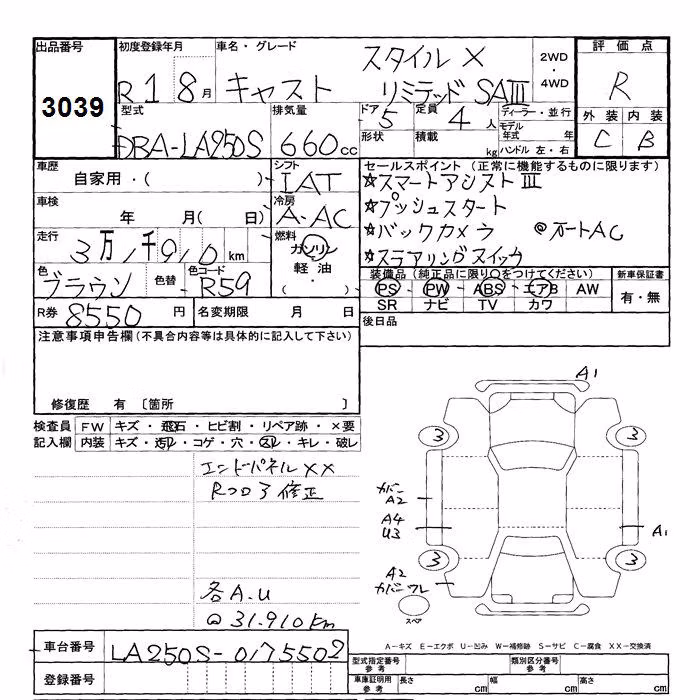 出品番号 3039
初度登録年月 R1 8月
車名・グレード キャスト スタイル X リミテッド SAⅢ
2WD・4WD
評価点 R
外装 C 内装 B
型式 DBA-LA250S
排気量 660cc
ドア 5 形状
定員 4人 積載 kg
ディーラー・並行
モデル年式 年
ハンドル 左・右
車歴 自家用・( )
シフト IAT
車検 年 月( 日)
冷房 A-AC
走行 3万1千910km
燃料 ガソリン 軽油・( )
色 ブラウン 色替 色コード R59
R券 8550円 名変期限 月 日
セールスポイント(正常に機能するものに限ります)
☆スマートアシストⅢ
☆プッシュスタート
☆バックカメラ @オートAC
☆ステアリングスイッチ
装備品(純正品に限り○をつけてください) 新車保証書
PS・PW・ABS・エアB AW 有・無
SR ナビ TV カワ
後日品
注意事項申告欄(不具合内容等は具体的に記入して下さい)
修復歴 有 〔箇所 〕
検査員記入欄
FW キズ・飛石・ヒビ割・リペア跡・×要
内装 キズ・汚レ・コゲ・穴・スレ・キレ・破レ
エンドパネルXX
Rフロア修正
各A.U
@31.910km
A1
3 3
カバーA2
A4
U3
A1
3 3
A2
カバーワレ
スペア
A-キズ E-エクボ U-凹み W-補修跡 S-サビ C-腐食 XX-交換済
車台番号 LA250S-0175502
登録番号
型式指定番号 参考 類別区分番号 参考
車庫証明用 参考 長さ cm 幅 cm 高さ cm